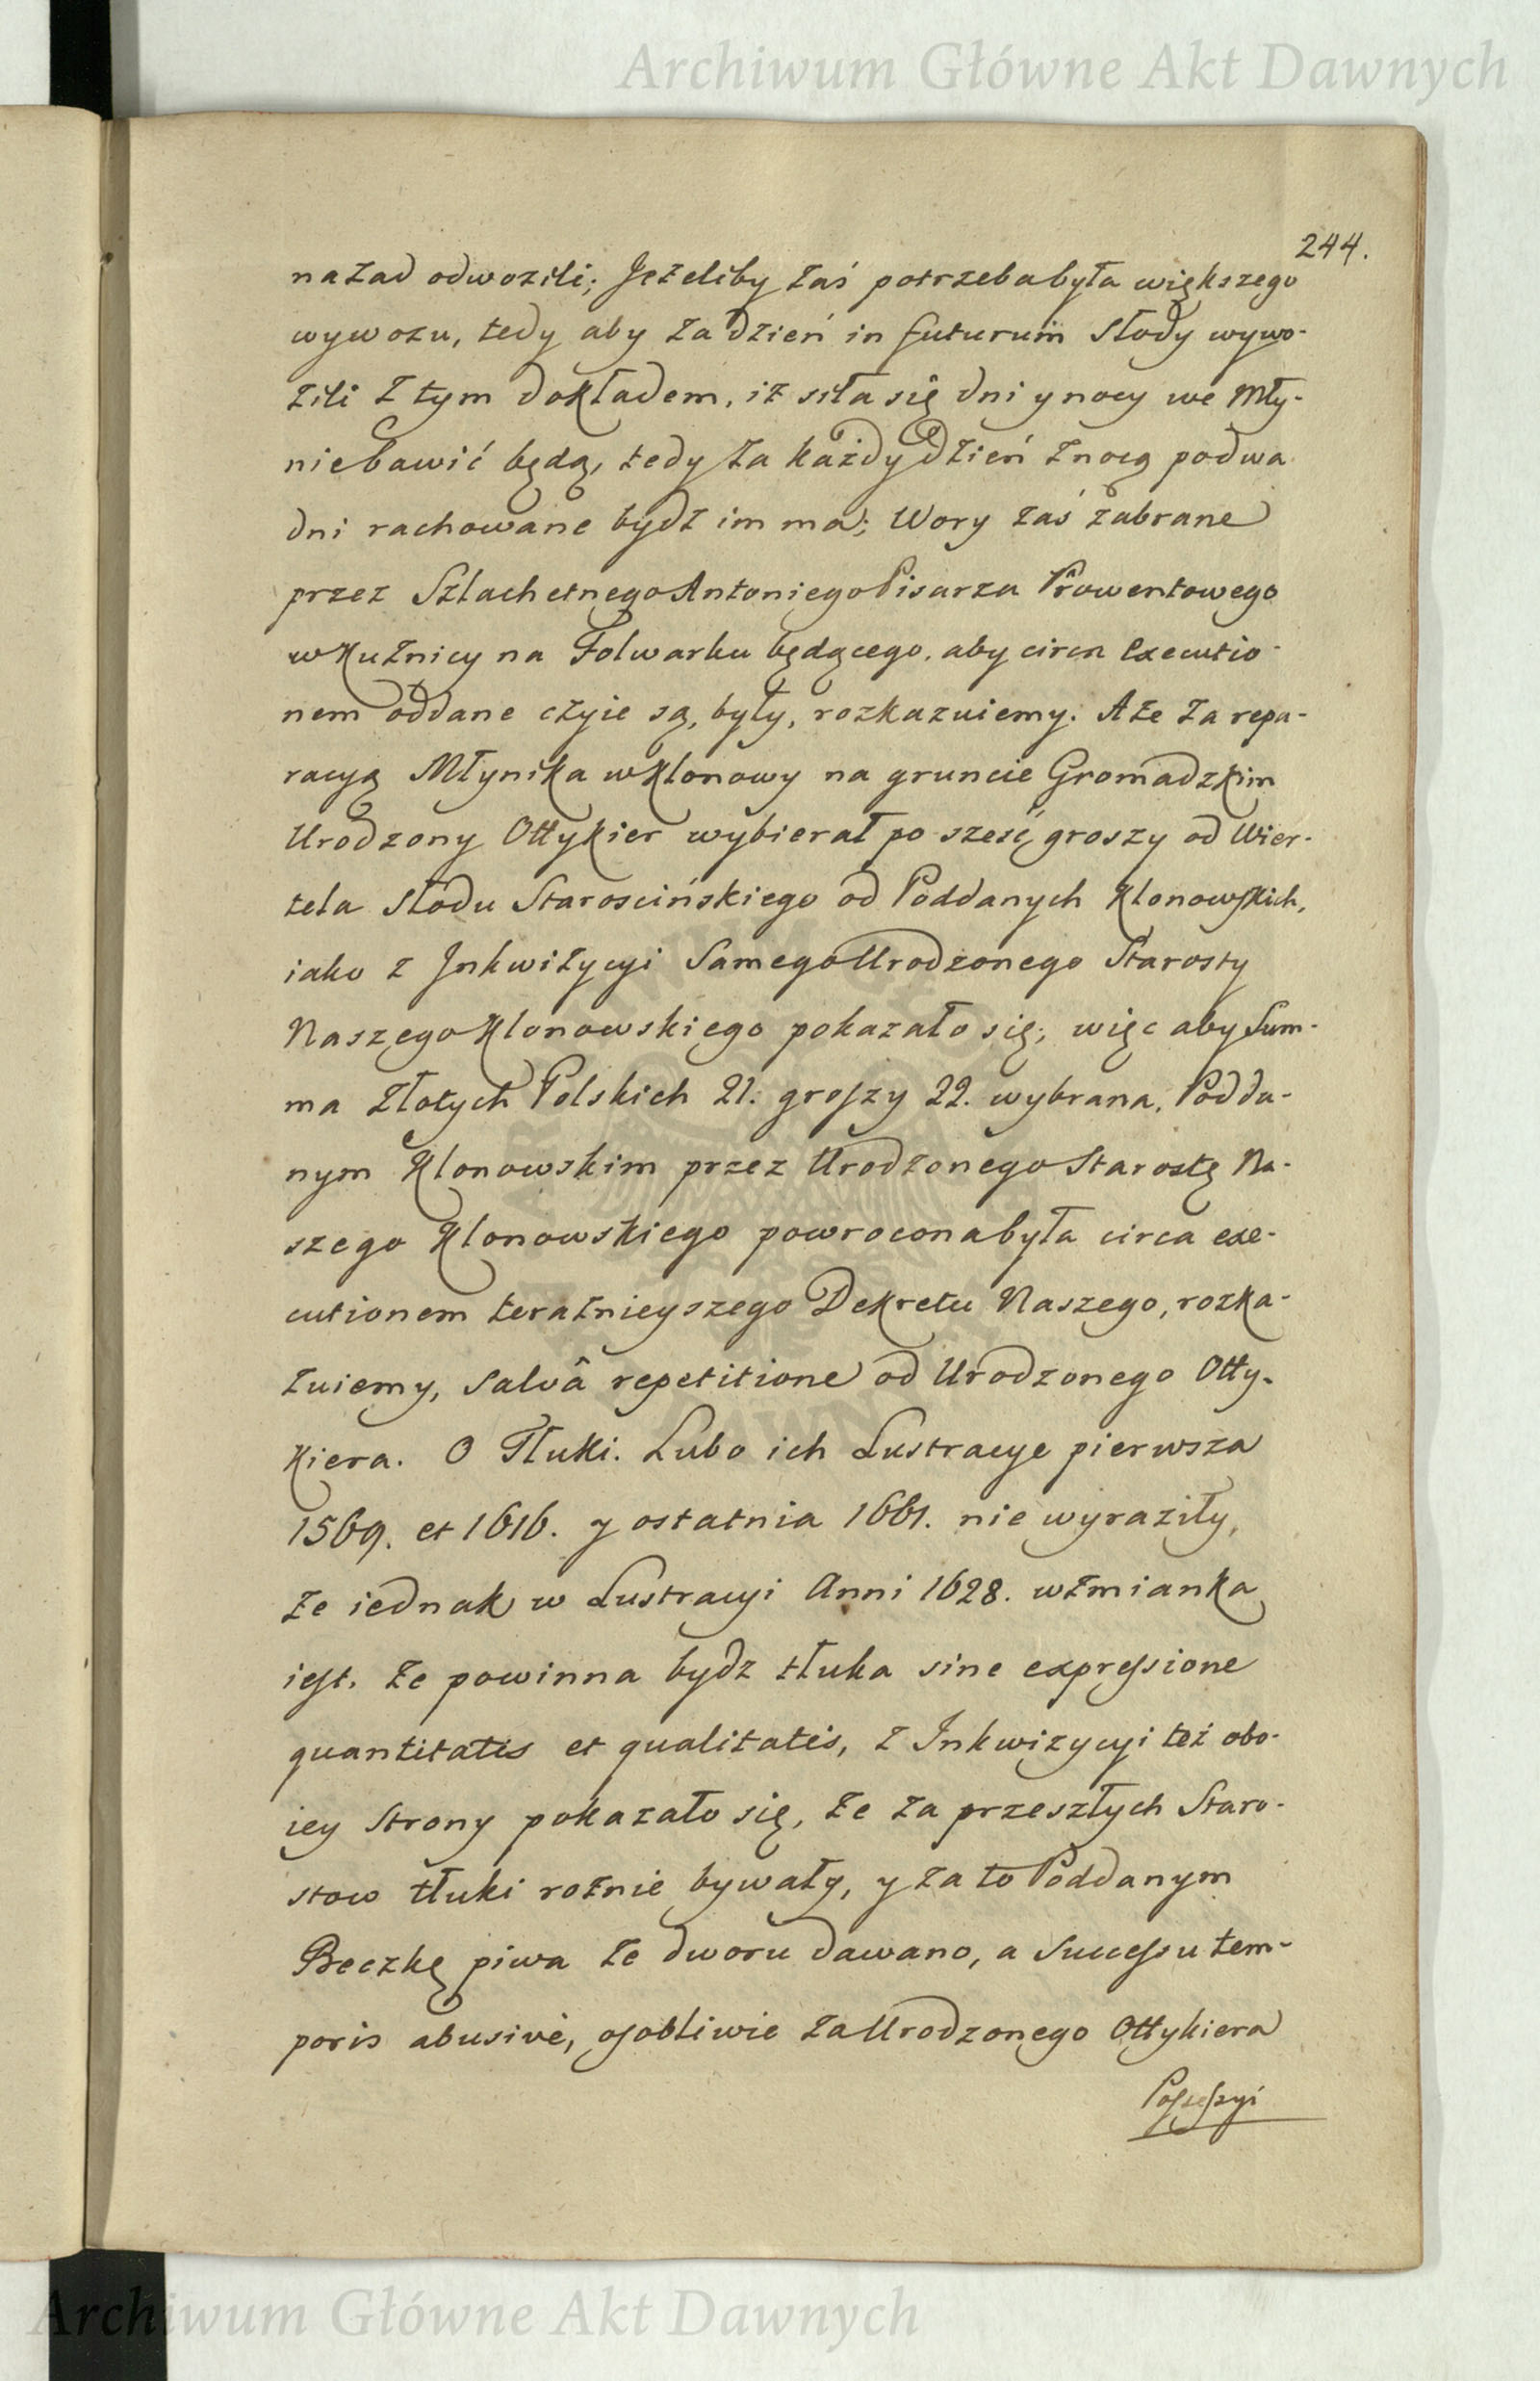 Archiwum Główne Akt Dawnych
244.
nazad odwozili; Jeżeliby zaś potrzeba była większego
wywozu, tedy aby za dzień in futurum Słody wywo-
zili z tym dokładem, iż siła się dni y nocy we Mły-
nie bawić będą, tedy za każdy dzień z nocą po dwa
dni rachowane bydź im ma; Wory zaś zabrane
przez Szlachetnego Antoniego Pisarza Prowentowego
w Kuźnicy na Folwarku będącego, aby circa Executio-
nem oddane czyie są, były, rozkazuiemy. A że za repa-
racyą Młynika w Klonowy na gruncie Gromadzkim
Urodzony Ottykier wybierał po sześć groszy od Wier-
tela słodu Starościńskiego od Poddanych Klonowskich,
iako z Inkwizycyi Samego Urodzonego Starosty
Naszego Klonowskiego pokazało się; więc aby Sum-
ma Złotych Polskich 21. groszy 22. wybrana, Podda-
nym Klonowskim przez Urodzonego Starostę Na-
szego Klonowskiego powrocona była circa exe-
cutionem teraźnieyszego Dekretu Naszego, rozka-
zuiemy, salvâ repetitione od Urodzonego Otty-
kiera. O Tłuki. Lubo ich Lustracye pierwsza
1569. et 1616. y ostatnia 1661. nie wyraziły,
że iednak w Lustracyi Anni 1628. wzmianka
iest, że powinna bydz tłuka sine expressione
quantitatis et qualitatis, z Inkwizycyi też obo-
iey Strony pokazało się, że za przeszłych Staro-
stow tłuki rożnie bywały, y za to Poddanym
Beczkę piwa ze dworu dawano, a Successu tem-
poris abusivè, osobliwie za Urodzonego Ottykiera
Possessyi
Archiwum Główne Akt Dawnych